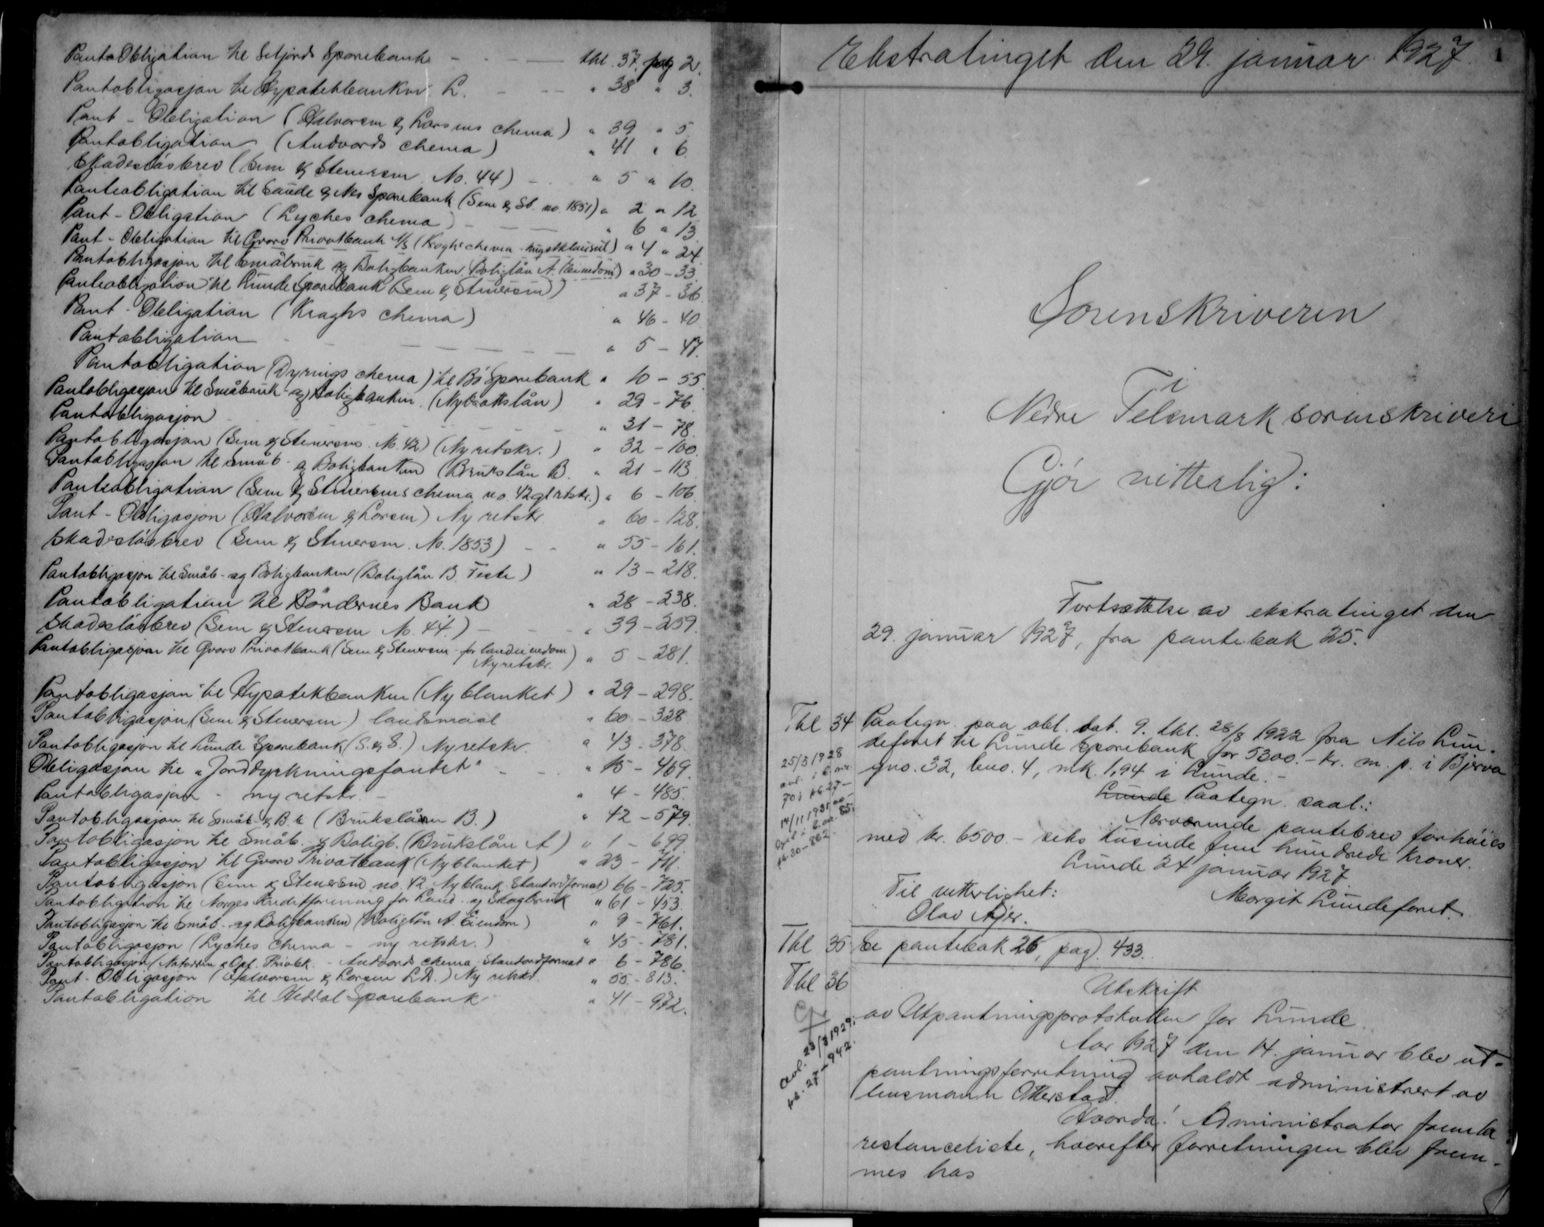 Panto Obligation til Seljords Sparebank - - - tbl. 37 pag 2.
Pantobligasjon til Hypotekbanken L. - - - " 38 " 3.
Pant - Obligation (Halvorsen & Larsens chema) " 39 " 5.
Pantobligation (Andvords chema) " 41 " 6
Skadesløsbrev (Sem & Stenersen No. 44) - - " 5 " 10.
Panteobligation til Saude & Nes Sparebank (Sem & St. no. 1851) " 2 " 12
Pant - Obligation (Lyches chema) - - " 6 " 13
Pant - Obligation til Gvarv Privatbank A/S (Kraghs chema - ) " 4 " 24.
Pantobligasjon til Småbruk og Boligbanken (Boliglån A. Eiendom) " 30 - 33
Panteobligation til Lunde Sparebank (Sem & Stenersen) " 37 - 36
Pant - Obligation (Kraghs chema) " 46 - 40
Pantobligation - - - " 5 - 47.
Pantobligation (Dyrings chema) til Bø Sparebank " 10 - 55.
Pantobligasjon til Småbruk og Boligbanken (Nybrottslån) " 29 - 76.
Pantobligasjon - - - " 21 - 78.
Pantobligasjon (Sem & Stenersens No. 42) (Ny retskr.) " 32 - 100.
Pantobligasjon til Småb. og Boligbanken (Brukslån B. " 21 - 113
Panteobligation (Sem & Stenersens chema no 42 gl. retskr.) " 6 - 106
Pant - Obligasjon (Halvorsen & Larsen) Ny retskr " 60 - 128.
Skadesløsbrev (Sem & Stenersen. No. 1853) - - " 55 - 161.
Pantobligasjon til Småb - og Boligbanken (Boliglån B. Feste) " 13 - 218.
Pantobligation til Bøndernes Bank " 28 - 238.
Skadesløsbrev (Sem & Stenersen No. 44) - " 39 - 259.
Pantobligasjon til Gvarv Privatbank (Sem & Stenersen - for landeiendom
Ny retskr. ) " 5 - 281.
Pantobligasjon til Hypotekbanken (Ny blanket) " 29 - 298.
Pantobligasjon (Sem & Stenersen) landsmaal " 60 - 328
Pantobligasjon til Lunde Sparebank (S. & S.) Ny retskr. " 43 - 378.
Obligasjon til "Jorddyrkningsfondet" - - " 15 - 469.
Pantobligasjon - ny retskr. - " 4 - 485
Pantobligasjon til Småb. og B.b. (Brukslån B.) " 42 - 579
Pantobligasjon til Småb. og Boligb. (Brukslån A) " 1 - 699.
Pantobligasjon til Gvarv Privatbank (Ny blanket) " 23 - 711.
Pantobligasjon (Sem & Stenersen no. 42. Ny blank. Standardformat) 66 - 725.
Pantobligation til Norges Kreditforening for Land - og Skogbruk " 61 - 453.
Pantobligasjon til Småb - og Boligbanken (Boliglån A. Eiendom) " 9 - 761.
Pantobligasjon (Lyches chema - ny retskr.) " 45 - 781.
Pantobligasjon - Andvords chema, Standardformat " 6 - 786.
Pant - Obligasjon (Halvorsen & Larsen L.A.) Ny retskr. " 55 - 813.
Pantobligation til Heddal Sparebank " 41 - 972.
Ekstratinget den 29. januar 1927. 1
Sorenskriveren
i
Nedre Telemark sorenskriveri
Gjør vitterlig:
Fortsættelse av ekstratinget den
29. januar 1927, fra pantebok 25.
Tbl 34 Paategn. paa obl. dat. 9. tbl. 28/8 1922 fra Nils Lun-
deforet til Lunde Sparebank for 5300.- kr. m. p. i Bjerva
gno. 32, bno. 4, mk 1,94 i Lunde. -
25/3 1928
Lunde Paategn. saal:
Nærværende pantebrev forhøies
med kr. 6500 - seks tusinde fem hundrede kroner.
Lunde 24 januar 1927
Til vitterlighet: Margit Lundeforet.
Olav Ajer.
Tbl 35 Se pantebok 26, pag. 433.
Tbl 36 Utskrift
av Utpantningsprotokollen for Lunde.
Aar 1927 den 14. januar blev ut-
pantningsforretning avholdt administrert av
lensmann Otterstad.
Avl. 23/8 1929.
pb. 27 - 942.
Hvorda: Administrator fremla
restanceliste, hvorefter forretningen blev frem-
mes hos